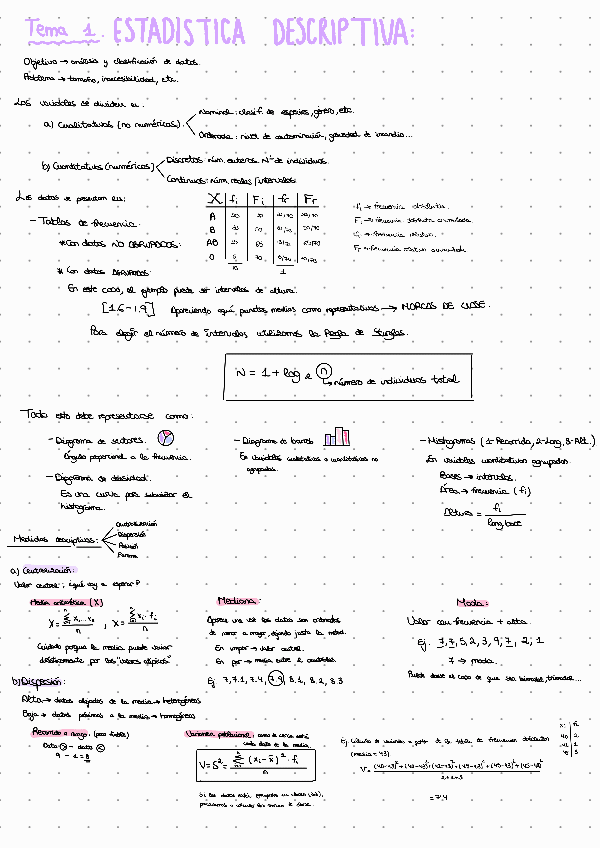 Tema 1. ESTADÍSTICA DESCRIPTIVA:
Objetivo → análisis y clasificación de datos.
Problema → tamaño, inaccesibilidad, etc.
Los variables se dividen en:
a) Cualitativas (no numéricas)
Nominal: clasif. de especies, género, etc.
Ordenada: nivel de contaminación, gravedad de incendio...
b) Cuantitativas (numéricas)
Discretas: núm. enteros. Nº de individuos.
Continuas: núm. reales / intervalos
Los datos se presentan en:
- Tablas de frecuencia.
* Con datos NO AGRUPADOS:
X fi Fi fr Fr
A
B
AB
O
n 1
fi → frecuencia absoluta
Fi → frecuencia absoluta acumulada
fr → frecuencia relativa
Fr → frecuencia relativa acumulada
* Con datos AGRUPADOS:
En este caso, el ejemplo puede ser intervalos de "altura".
[1.6 - 1.9] Apareciendo aquí, puntos medios como representativos → MARCAS DE CLASE.
Para elegir el número de intervalos utilizamos la Regla de Sturges.
N = 1 + log 2 n
→ número de individuos total
Todo esto debe representarse como:
- Diagrama de sectores.
Ángulo proporcional a la frecuencia.
- Diagrama de barras
En variables cualitativas o cuantitativas no
agrupadas.
- Histogramas (1-Recorrido, 2-Long, 3-Alt.)
En variables cuantitativas agrupadas.
Bases → intervalos.
Área → frecuencia (fi)
Altura = fi / long. base
- Diagrama de densidad.
Es una curva para suavizar el
histograma.
Medidas descriptivas:
Centralización
Dispersión
Posición
Forma
a) Centralización:
Valor central: ¿qué voy a esperar?
Media aritmética (X)
n , n
Cuidado porque la media puede variar
drásticamente por los "valores atípicos"
Mediana:
Aparece una vez los datos son ordenados
de menor a mayor, dejando justo la mitad.
En impar → valor central.
En par → media entre el cantidad.
Ej. 7, 7.1, 7.4, 7.9, 8.1, 8.2, 8.3
Moda:
Valor con frecuencia + alta.
Ej. 7, 7, 5, 2, 3, 9, 7, 2, 1
7 → moda.
Puede darse el caso de que sea bimodal, trimodal...
b) Dispersión:
Alta → datos alejados de la media → heterogéneos
Baja → datos próximos a la media → homogéneos
Recorrido o rango. (poco fiable)
9 - 1 = 8
Varianza poblacional: como de cerca está
cada dato de la media.
V = S² = Σ (xi - x̄)² · fi / n
(media = 43)
= 7,4